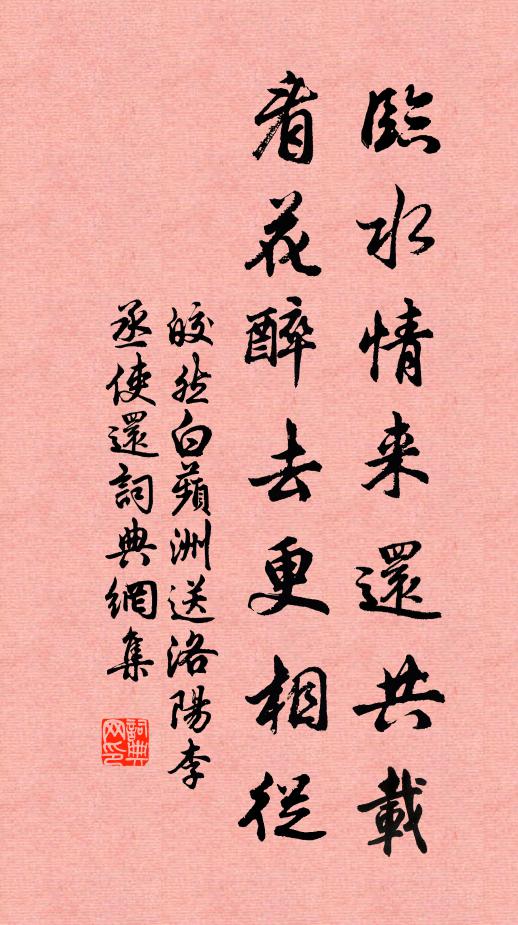 臨水情来還共載
看花醉去更相從
皎然白蘋洲送洛陽李
丞使還詞典網集
詞典
网印